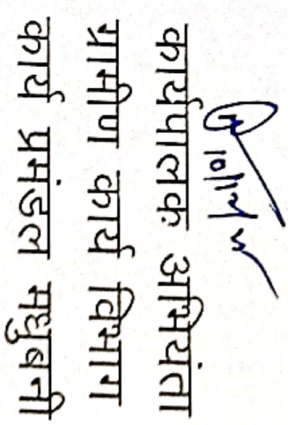 कार्यपालक अभियंता
ग्रामीण कार्य विभाग
कार्य प्रमंडल मधुबनी